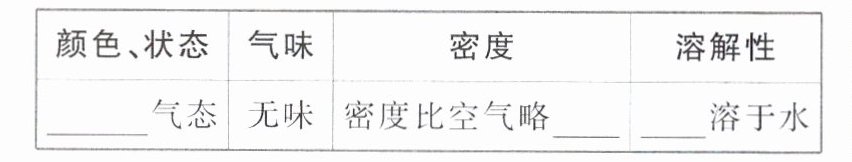 颜色、状态 气味 密度 溶解性
______气态 无味 密度比空气略____ ____溶于水